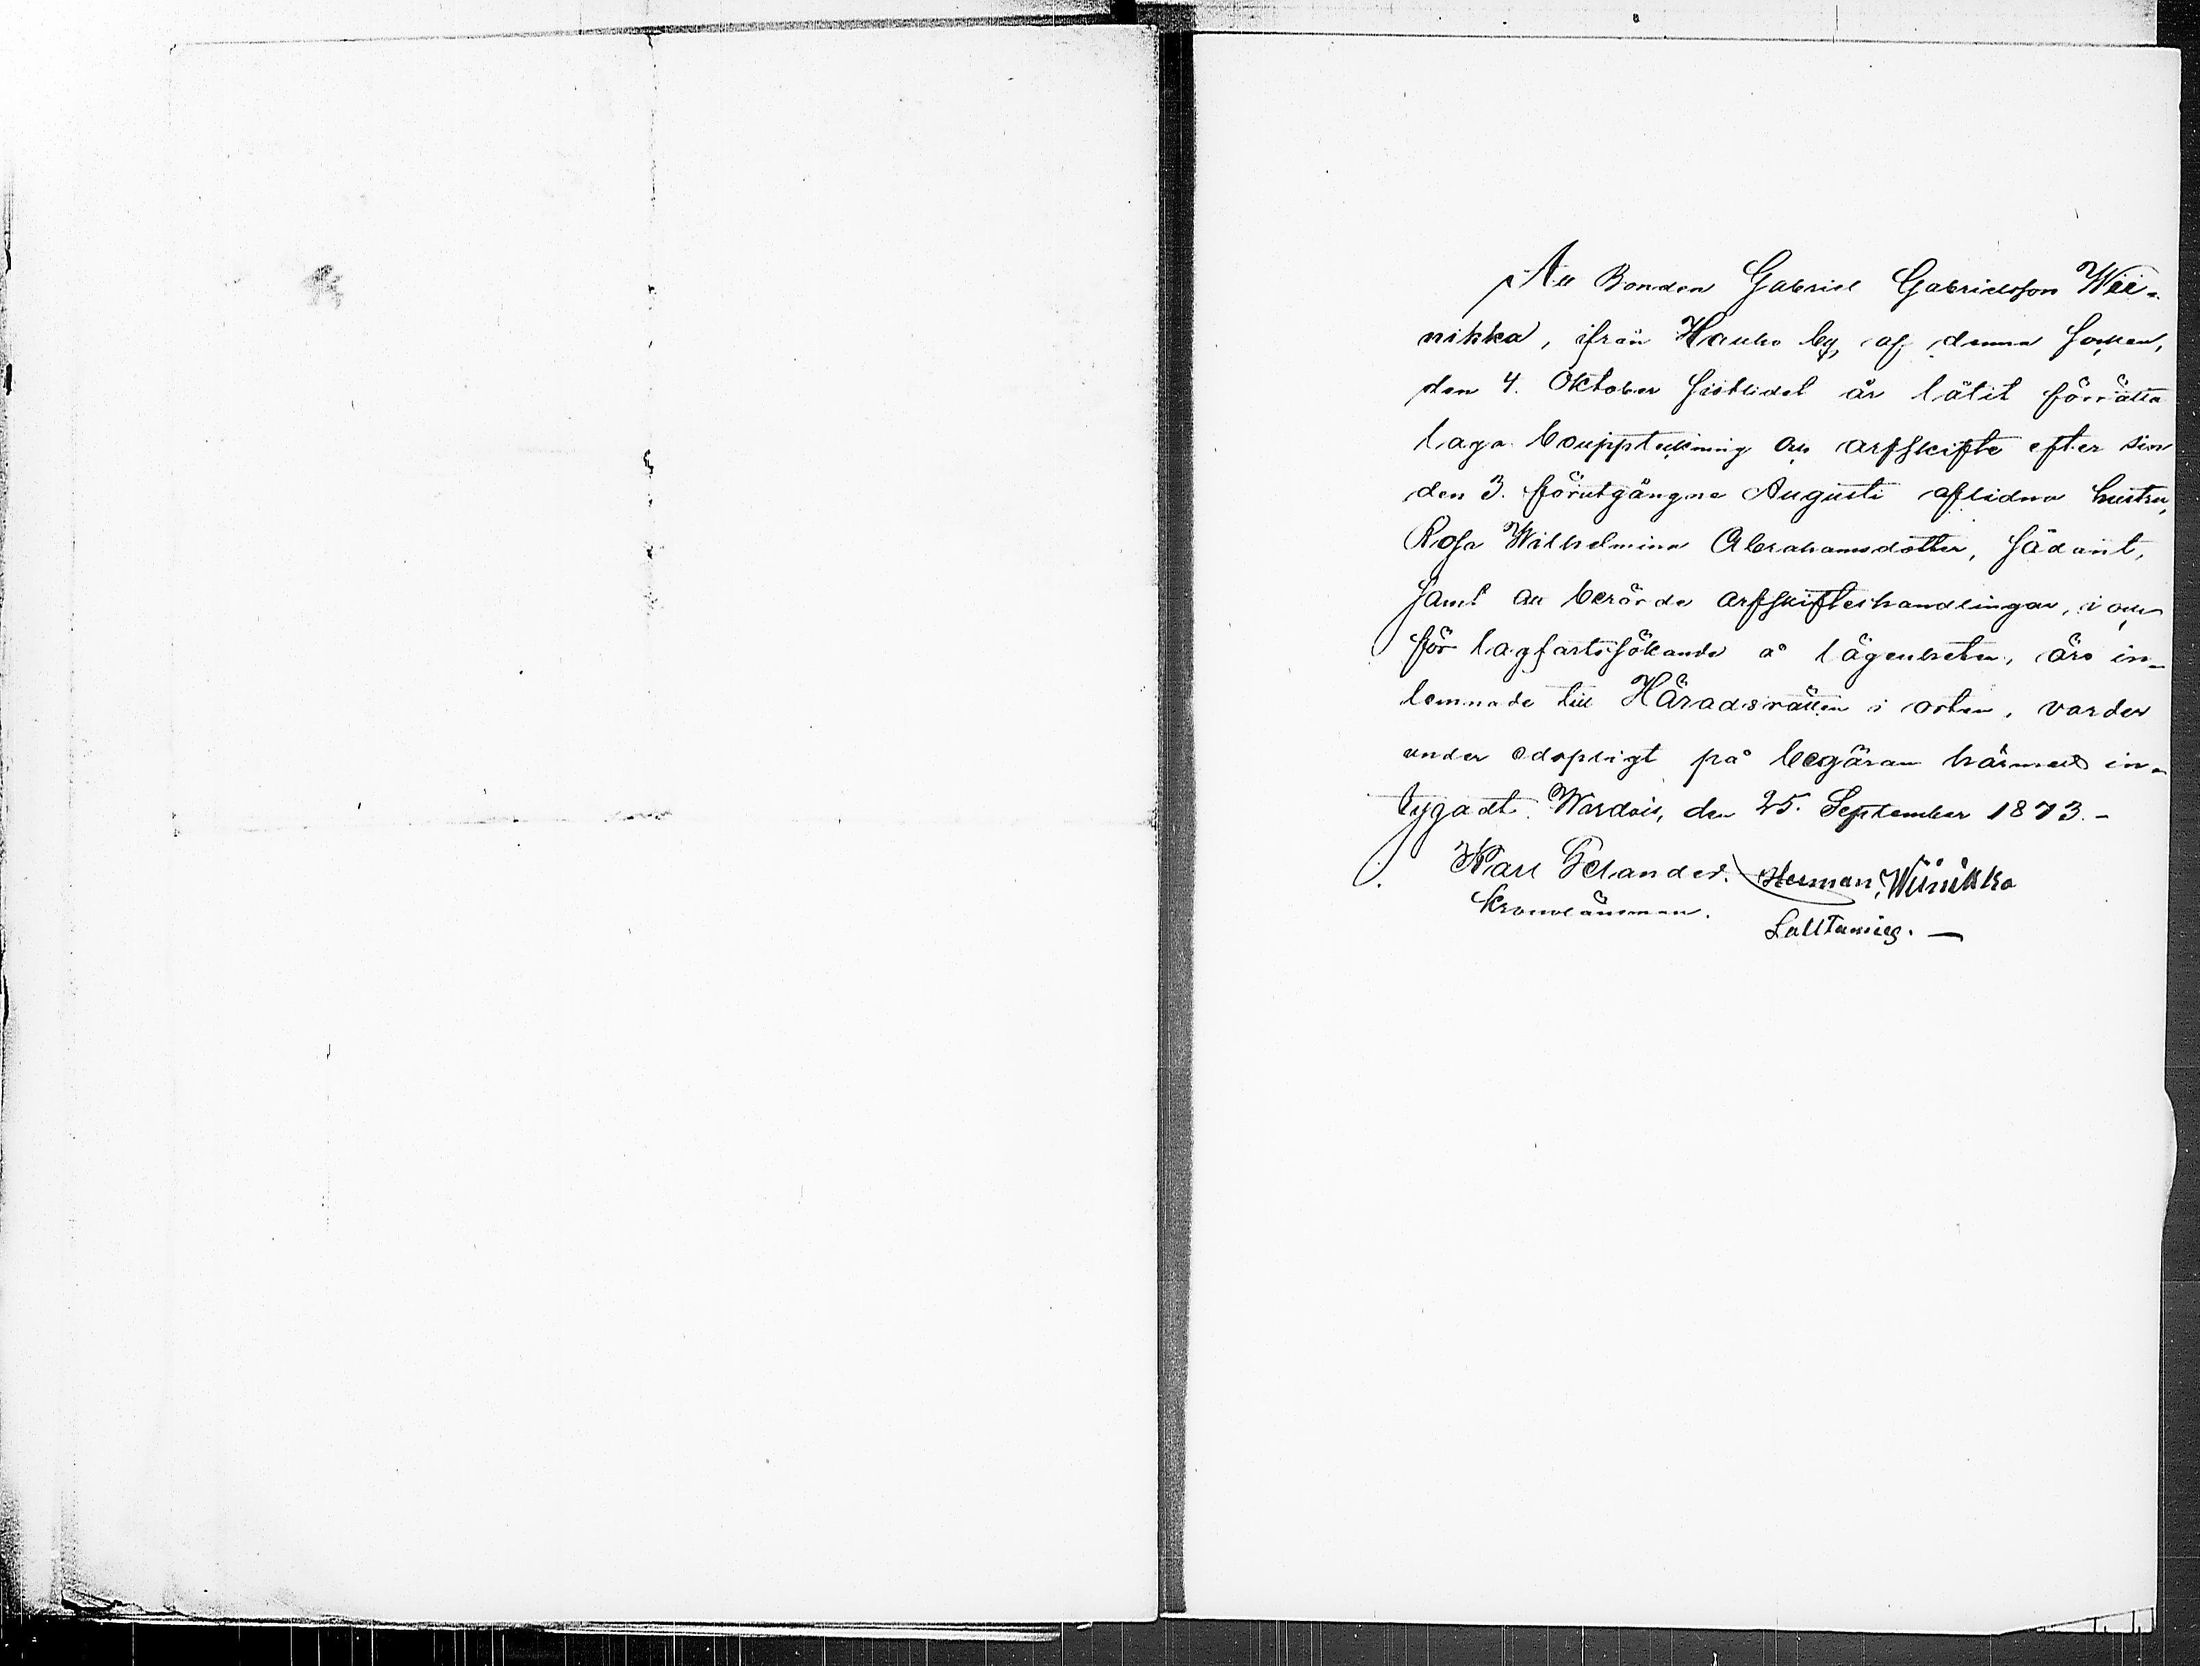 Att Bonden Gabriel Gabrielsson Wii-
nikka, ifrån Hauho by af denna socken,
den 4. Oktober sistlidet år låtit förrätta
laga bouppteckning och arfskifte efter sin
den 3. förutgångne Augusti aflidna hustru,
Rosa Wilhelmina Abrahamsdotter, sådant,
samt att berörde arfskifteshandlingar, i och
för lagfartssökande å lägenheten, äro in-
lemnade till Häradsrätten i orten, varder
under edspligt på begäran härmed in-
tygadt. Wordois, den 25. September 1873.-
Karl Felander. Herman Wiinikka
Kronolänsman. Lauttamies. —